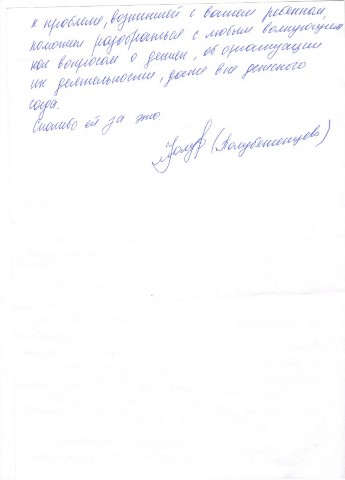 к проблеме, возникшей с вашем ребенком,
поможет разобраться с любым волнующим
нас вопросом о детях, об организации
их деятельности, даже вне детского
сада.
Спасибо ей за это.
(Голубетенцева)